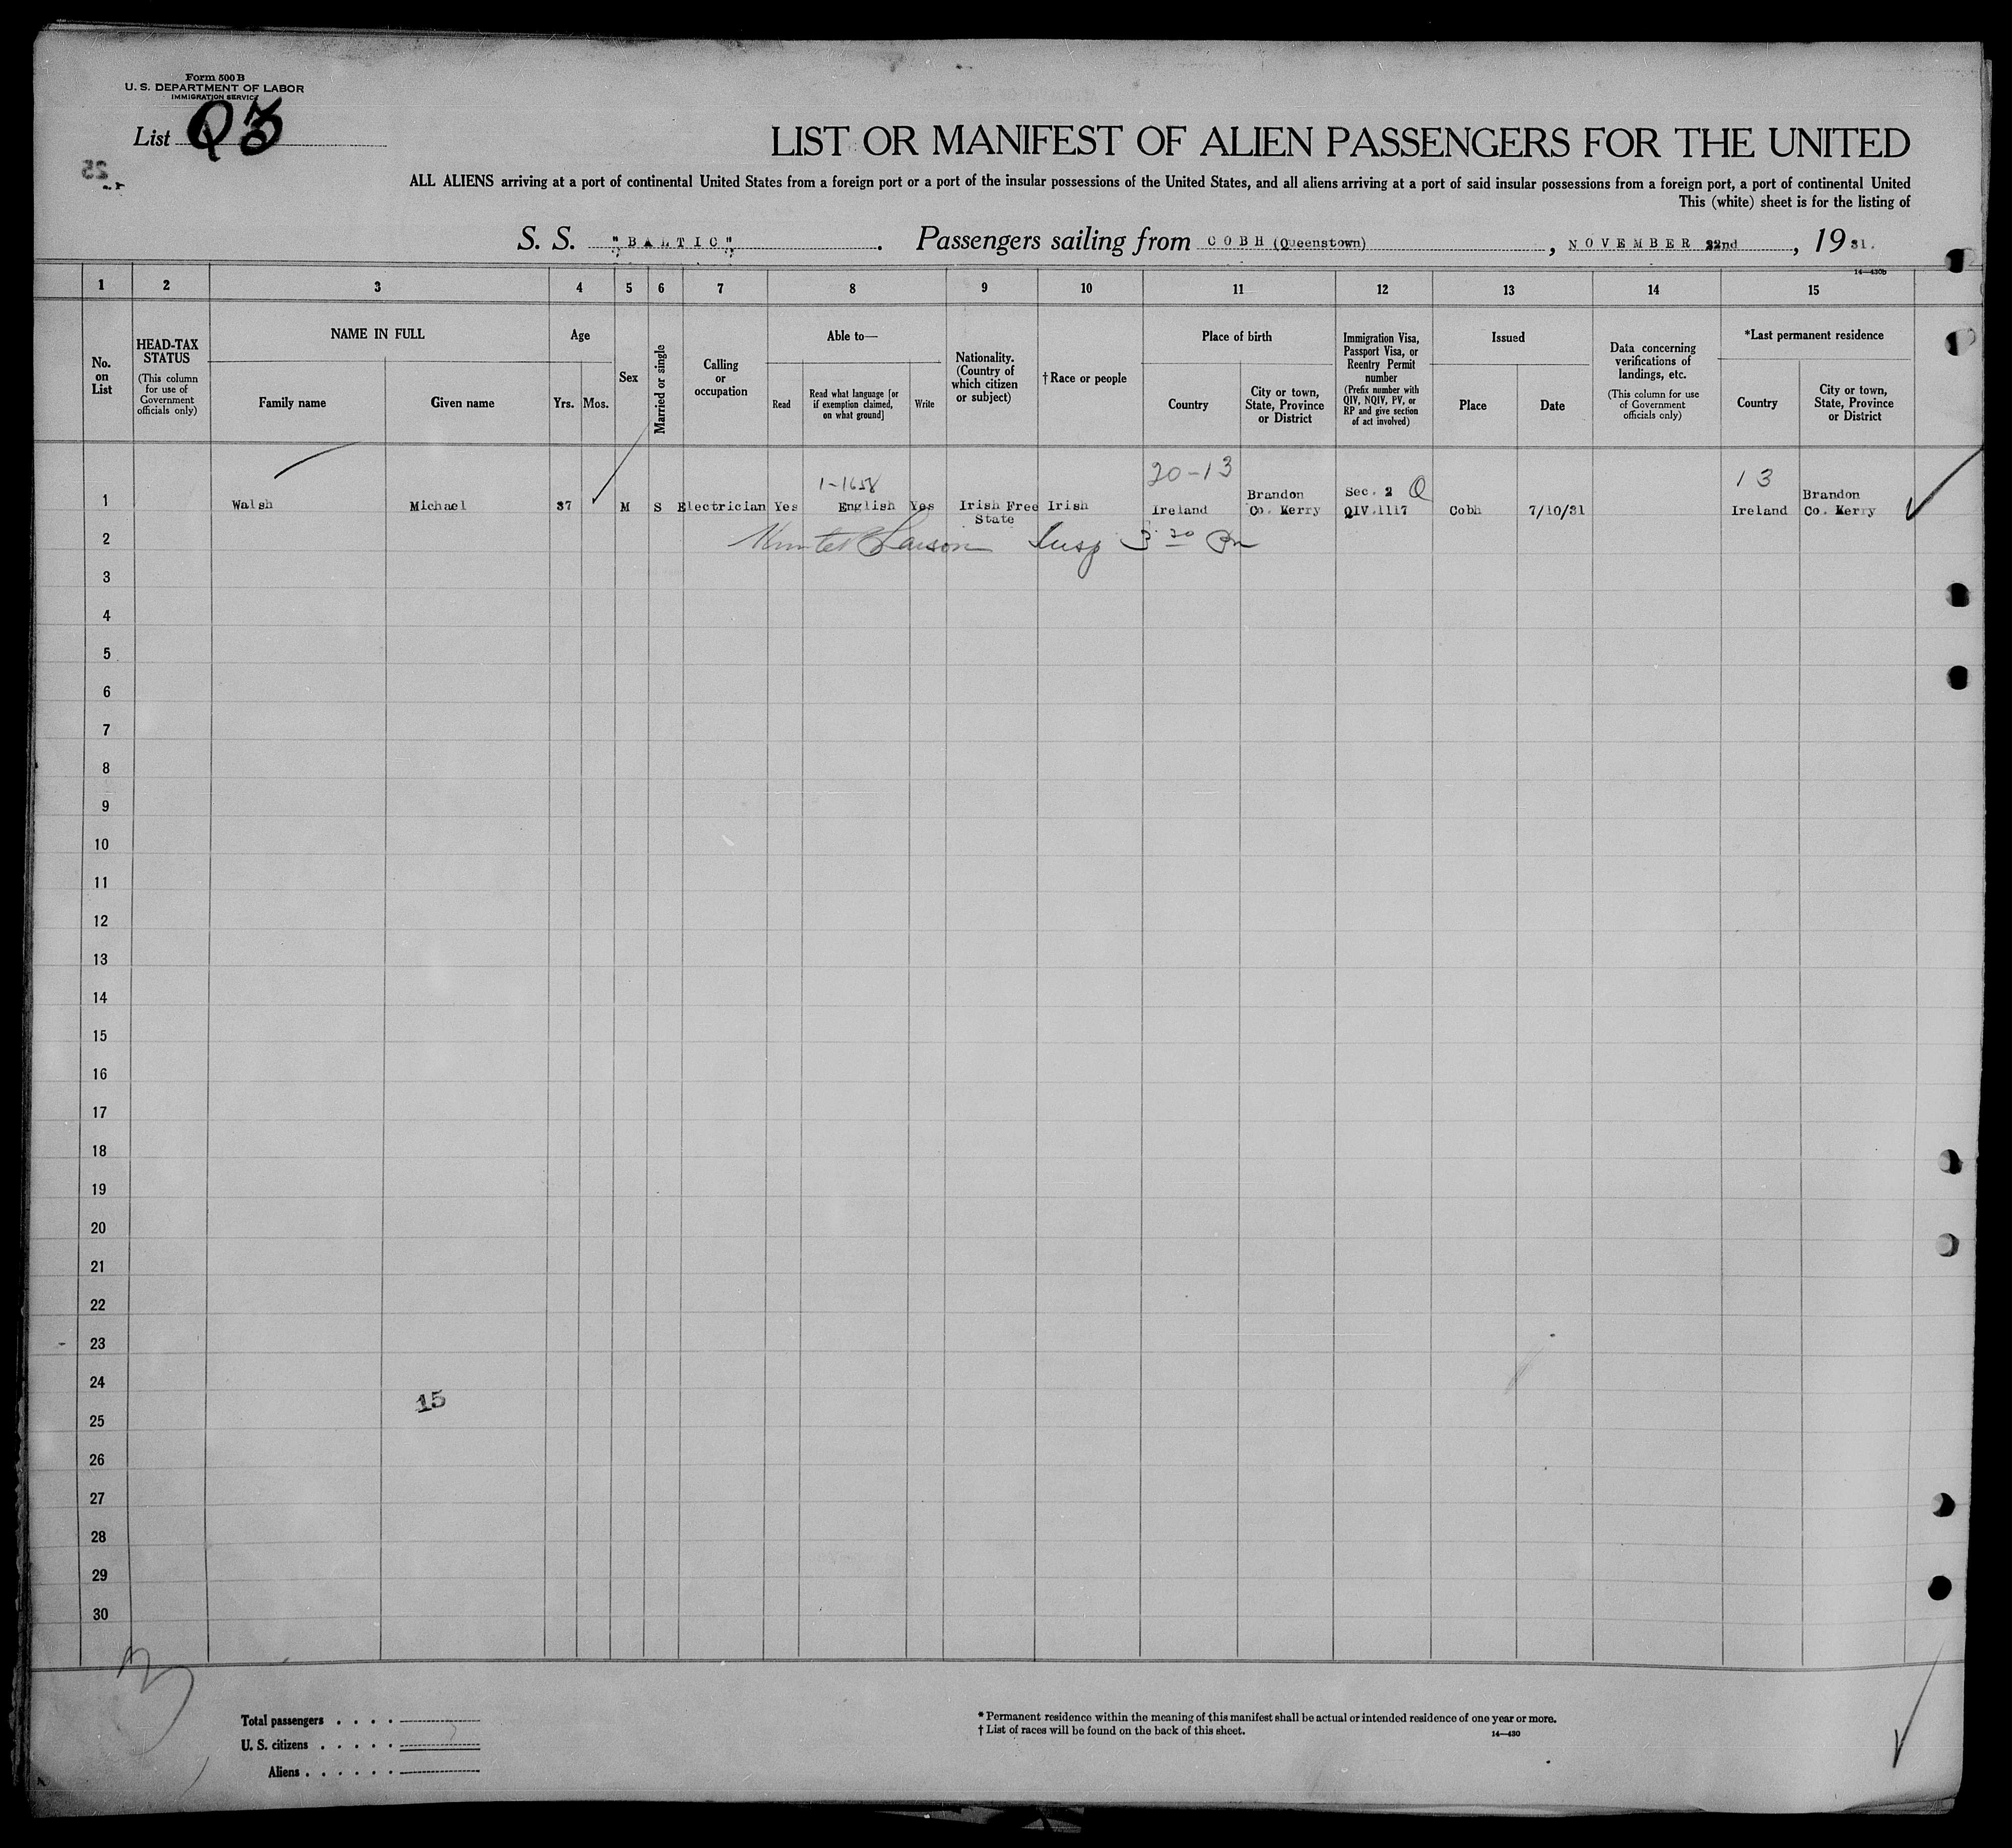 Form 500 B
U. S. DEPARTMENT OF LABOR
IMMIGRATION SERVICE
List Q3
25
LIST OR MANIFEST OF ALIEN PASSENGERS FOR THE UNITED
ALL ALIENS arriving at a port of continental United States from a foreign port or a port of the insular possessions of the United States, and all aliens arriving at a port of said insular possessions from a foreign port, a port of continental United
This (white) sheet is for the listing of
S. S. "BALTIC". Passengers sailing from COBH (Queenstown), NOVEMBER 22nd, 1931.
14—430b
1 2 3 4 5 6 7 8 9 10 11 12 13 14 15
No. on List
HEAD-TAX STATUS
(This column for use of Government officials only)
NAME IN FULL
Family name
Given name
Age
Yrs.
Mos.
Sex
Married or single
Calling or occupation
Able to—
Read
Read what language [or if exemption claimed, on what ground]
Write
Nationality. (Country of which citizen or subject)
†Race or people
Place of birth
Country
City or town, State, Province or District
Immigration Visa, Passport Visa, or Reentry Permit number
(Prefix number with QIV, NQIV, PV, or RP and give section of act involved)
Issued
Place
Date
Data concerning verifications of landings, etc.
(This column for use of Government officials only)
*Last permanent residence
Country
City or town, State, Province or District
1-1658
20-13
13
1 Walsh Michael 37 M S Electrician Yes English Yes Irish Free State Irish Ireland Brandon Co. Kerry Sec. 2 Q QIV.1117 Cobh 7/10/31 Ireland Brandon Co. Kerry
2 Insp 3 20 Pm
3
4
5
6
7
8
9
10
11
12
13
14
15
16
17
18
19
20
21
22
23
24
15
25
26
27
28
29
30
3
Total passengers . . . .
U. S. citizens . . . . .
Aliens . . . . . .
* Permanent residence within the meaning of this manifest shall be actual or intended residence of one year or more.
† List of races will be found on the back of this sheet.
14—430